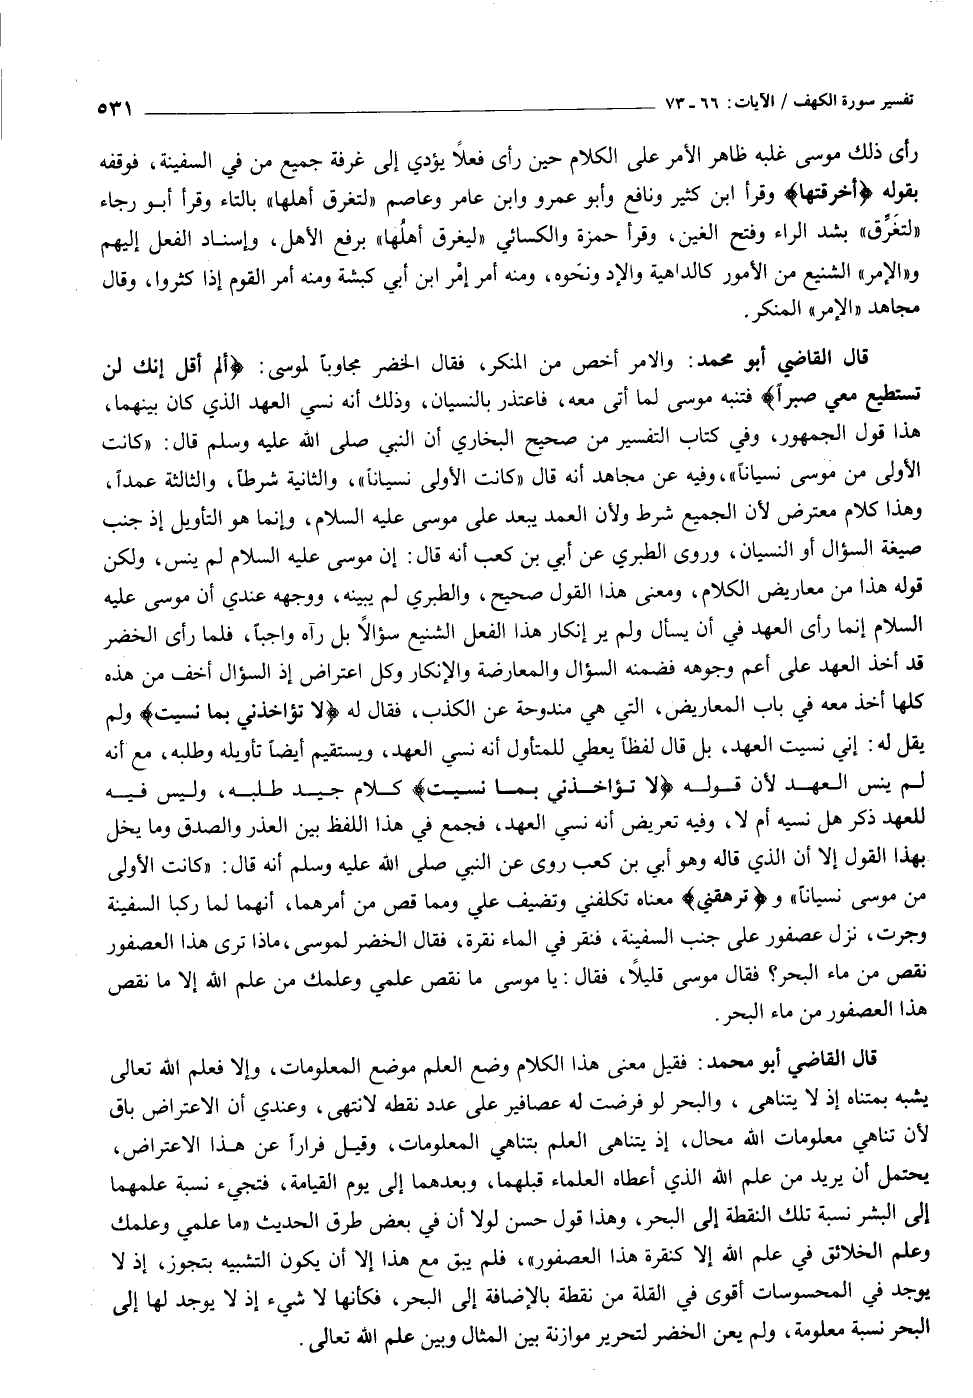 تفسير سورة الكهف / الآيات : ٦٦ - ٧٣ ٥٣١
رأى ذلك موسى غلبه ظاهر الأمر على الكلام حين رأى فعلًا يؤدي إلى غرفة جميع من في السفينة، فوقفه
بقوله ﴿أخرقتها﴾ وقرأ ابن كثير ونافع وأبو عمرو وابن عامر وعاصم «لتغرق أهلها» بالتاء وقرأ أبو رجاء
«لتغَرِّق» بشد الراء وفتح الغين، وقرأ حمزة والكسائي «ليغرق أهلُها» برفع الأهل، وإسناد الفعل إليهم
و«الإمر» الشنيع من الأمور كالداهية والإد ونحَوه، ومنه أمر إمْر ابن أبي كبشة ومنه أمر القوم إذا كثروا، وقال
مجاهد «الإمر» المنكر.
قال القاضي أبو محمد: والامر أخص من المنكر، فقال الخضر مجاوباً لموسى: ﴿ألم أقل إنك لن
تستطيع معي صبراً﴾ فتنبه موسى لما أتى معه، فاعتذر بالنسيان، وذلك أنه نسي العهد الذي كان بينهما،
هذا قول الجمهور، وفي كتاب التفسير من صحيح البخاري أن النبي صلى الله عليه وسلم قال: «كانت
الأولى من موسى نسياناً»، وفيه عن مجاهد أنه قال «كانت الأولى نسياناً»، والثانية شرطاً، والثالثة عمداً،
وهذا كلام معترض لأن الجميع شرط ولأن العمد يبعد على موسى عليه السلام، وإنما هو التأويل إذ جنب
صيغة السؤال أو النسيان، وروى الطبري عن أبي بن كعب أنه قال: إن موسى عليه السلام لم ينس، ولكن
قوله هذا من معاريض الكلام، ومعنى هذا القول صحيح، والطبري لم يبينه، ووجهه عندي أن موسى عليه
السلام إنما رأى العهد في أن يسأل ولم ير إنكار هذا الفعل الشنيع سؤالًا بل رآه واجباً، فلما رأى الخضر
قد أخذ العهد على أعم وجوهه فضمنه السؤال والمعارضة والإنكار وكل اعتراض إذ السؤال أخف من هذه
كلها أخذ معه في باب المعاريض، التي هي مندوحة عن الكذب، فقال له ﴿لا تؤاخذني بما نسيت﴾ ولم
يقل له: إني نسيت العهد، بل قال لفظاً يعطي للمتأول أنه نسي العهد، ويستقيم أيضاً تأويله وطلبه، مع أنه
لم ينس العهد لأن قوله ﴿لا تؤاخذني بما نسيت﴾ كلام جيد طلبه، وليس فيه
للعهد ذكر هل نسيه أم لا، وفيه تعريض أنه نسي العهد، فجمع في هذا اللفظ بين العذر والصدق وما يخل
بهذا القول إلا أن الذي قاله وهو أبي بن كعب روى عن النبي صلى الله عليه وسلم أنه قال: «كانت الأولى
من موسى نسياناً» و﴿ترهقني﴾ معناه تكلفني وتضيف علي ومما قص من أمرهما، أنهما لما ركبا السفينة
وجرت، نزل عصفور على جنب السفينة، فنقر في الماء نقرة، فقال الخضر لموسى، ماذا ترى هذا العصفور
نقص من ماء البحر؟ فقال موسى قليلًا، فقال: يا موسى ما نقص علمي وعلمك من علم الله إلا ما نقص
هذا العصفور من ماء البحر.
قال القاضي أبو محمد: فقيل معنى هذا الكلام وضع العلم موضع المعلومات، وإلا فعلم الله تعالى
يشبه بمتناه إذ لا يتناهى، والبحر لو فرضت له عصافير على عدد نقطه لانتهى، وعندي أن الاعتراض باق
لأن تناهي معلومات الله محال، إذ يتناهى العلم بتناهي المعلومات، وقيل فراراً عن هذا الاعتراض،
يحتمل أن يريد من علم الله الذي أعطاه العلماء قبلهما، وبعدهما إلى يوم القيامة، فتجيء نسبة علمهما
إلى البشر نسبة تلك النقطة إلى البحر، وهذا قول حسن لولا أن في بعض طرق الحديث «ما علمي وعلمك
وعلم الخلائق في علم الله إلا كنقرة هذا العصفور»، فلم يبق مع هذا إلا أن يكون التشبيه بتجوز، إذ لا
يوجد في المحسوسات أقوى في القلة من نقطة بالإضافة إلى البحر، فكأنها لا شيء إذ لا يوجد لها إلى
البحر نسبة معلومة، ولم يعن الخضر لتحرير موازنة بين المثال وبين علم الله تعالى.